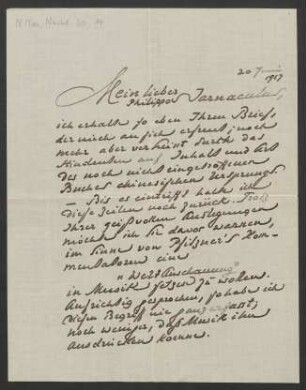 20 Juni
1917
Mein lieber
Philipp Jarnach,
ich erhalte so eben Ihren Brief,
der mich an sich erfreut, noch
mehr aber verheint durch das
Hindeuten auf Inhalt und Art
des noch nicht eingetroffenen
Buches chinesischen Ursprungs.
– Bis es eintrifft halte ich
diese Zeilen noch zurück. Trotz
Ihrer geistvollen Auslegungen
möchte ich Sie davor warnen,
im Sinne von Pfitzner's Kom-
mentatoren eine
„Weltanschauung"
in Musik setzen zu wollen.
Aufrichtig gesprochen, so habe ich
diesen Begriff nie ganz erfasst;
noch weniger, daß Musik ihn
ausdrücken koenne.